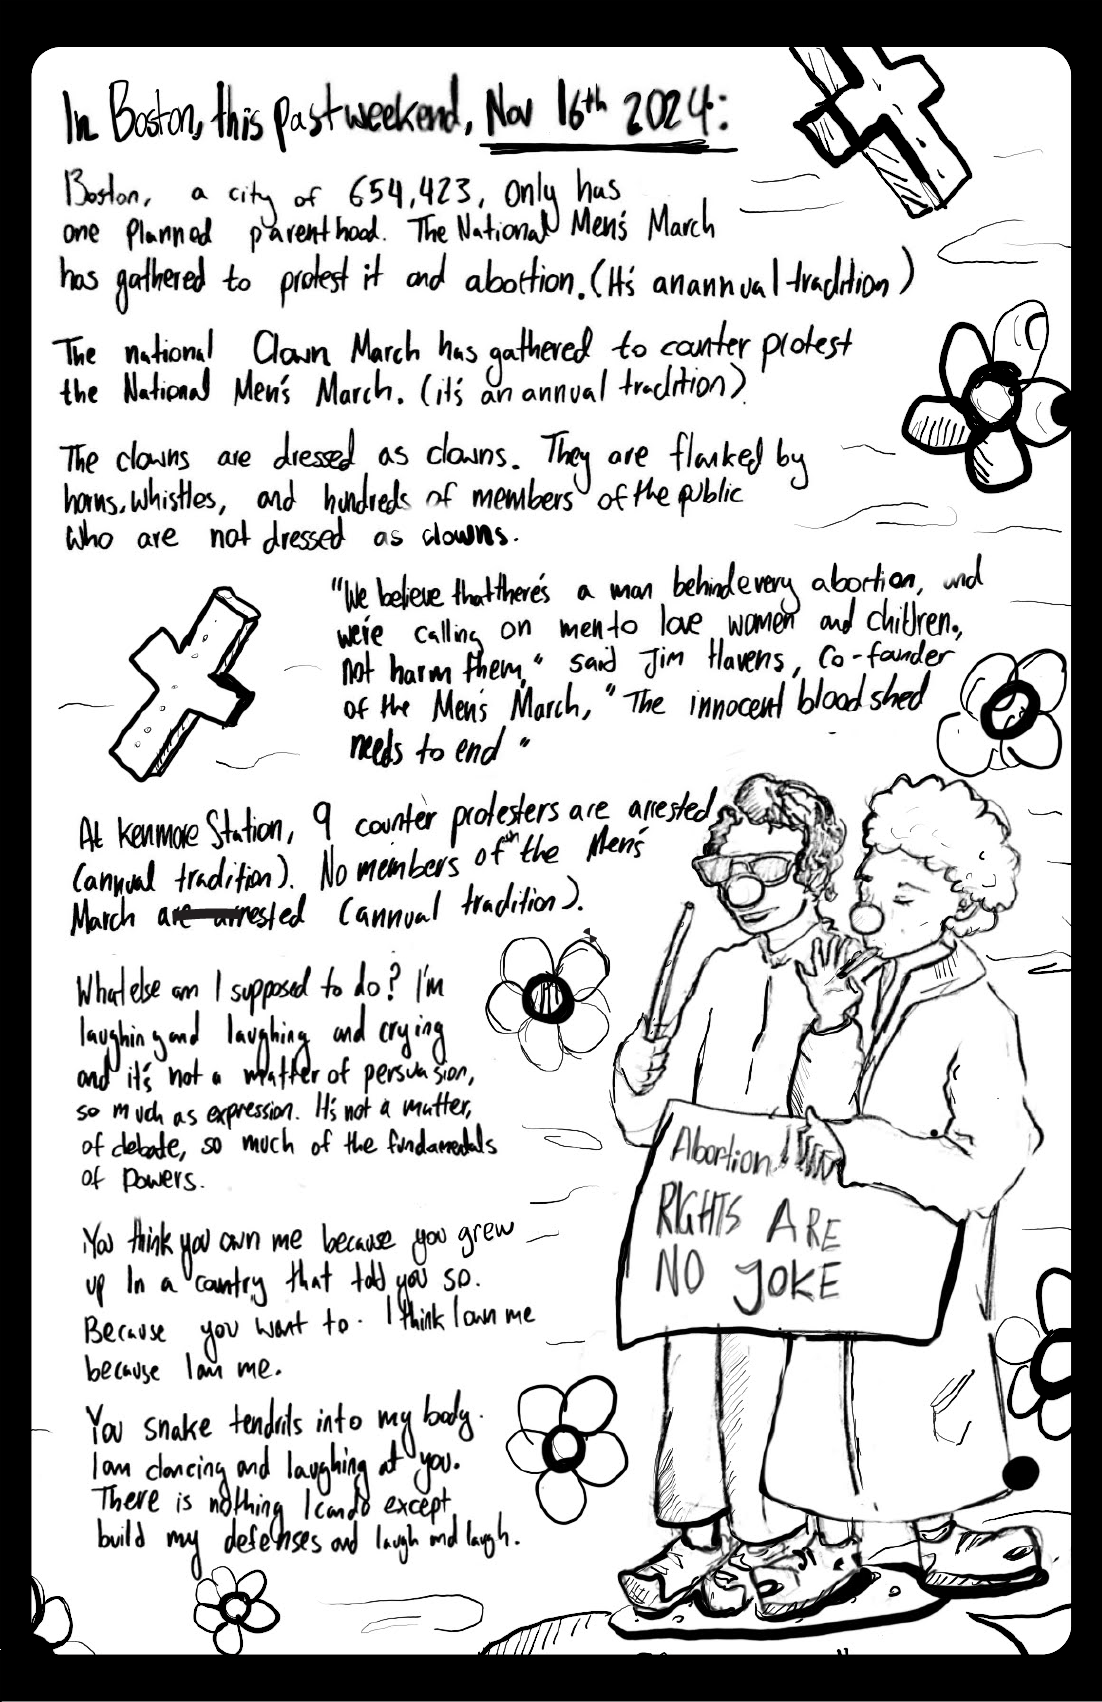 In Boston, this past weekend, Nov 16th 2024:
Boston, a city of 654,423, only has
one planned parenthood. The National Men's March
has gathered to protest it and abortion. (It's an annual tradition)
The national Clown March has gathered to counter protest
the National Men's March. (it's an annual tradition)
The clowns are dressed as clowns. They are flanked by
horns, whistles, and hundreds of members of the public
who are not dressed as clowns.
"We believe that there's a man behind every abortion, and
we're calling on men to love women and children,
not harm them," said Jim Havens, Co-founder
of the Men's March, "The innocent bloodshed
needs to end"
At Kenmore Station, 9 counter protesters are arrested
(annual tradition). No members of the Men's
March are arrested (annual tradition).
What else am I supposed to do? I'm
laughing and laughing and crying
and it's not a matter of persuasion,
so much as expression. It's not a matter,
of debate, so much of the fundamentals
of powers.
You think you own me because you grew
up in a country that told you so.
Because you want to. I think I own me
because I am me.
You snake tendrils into my body.
I am dancing and laughing at you.
There is nothing I can do except
build my defenses and laugh and laugh.
Abortion
RIGHTS ARE
NO JOKE